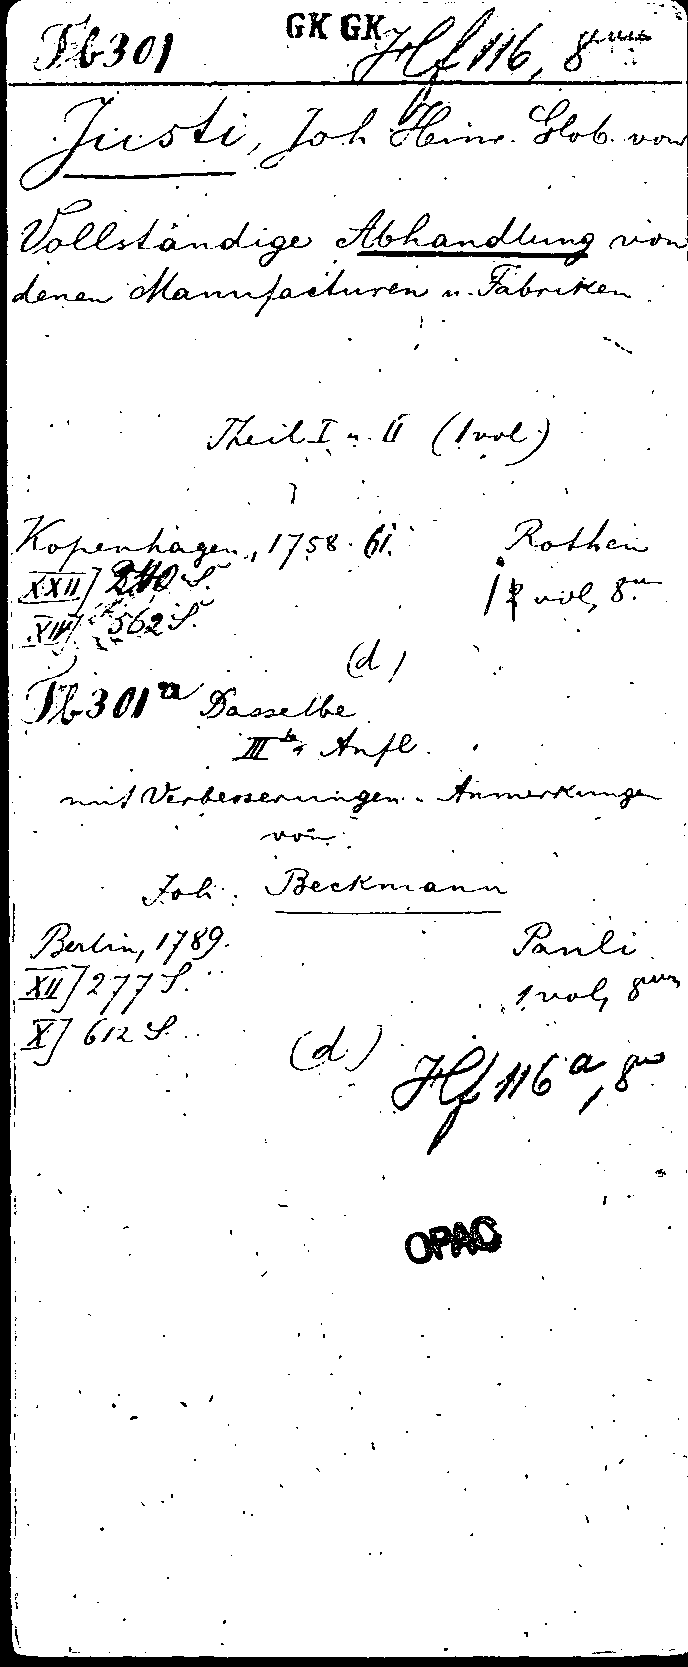 Fb 301 GK GK Hf 116, 8vo
Justi, Joh. Heinr. Glob. von
Vollständige Abhandlung von
denen Manufacturen u. Fabriken
Theil I u. II (1 vol.)
Kopenhagen, 1758-61. Rothen
XXII] 240 S. 1 vol, 8vo
XIV] 562 S.
(d)
Fb 301 a Dasselbe
III te Aufl.
mit Verbesserungen u. Anmerkungen
von
Joh. Beckmann
Berlin, 1789. Pauli
XII] 277 S. 1 vol, 8vo
X] 612 S.
(d.)
Hf 116 a, 8vo
OPAC